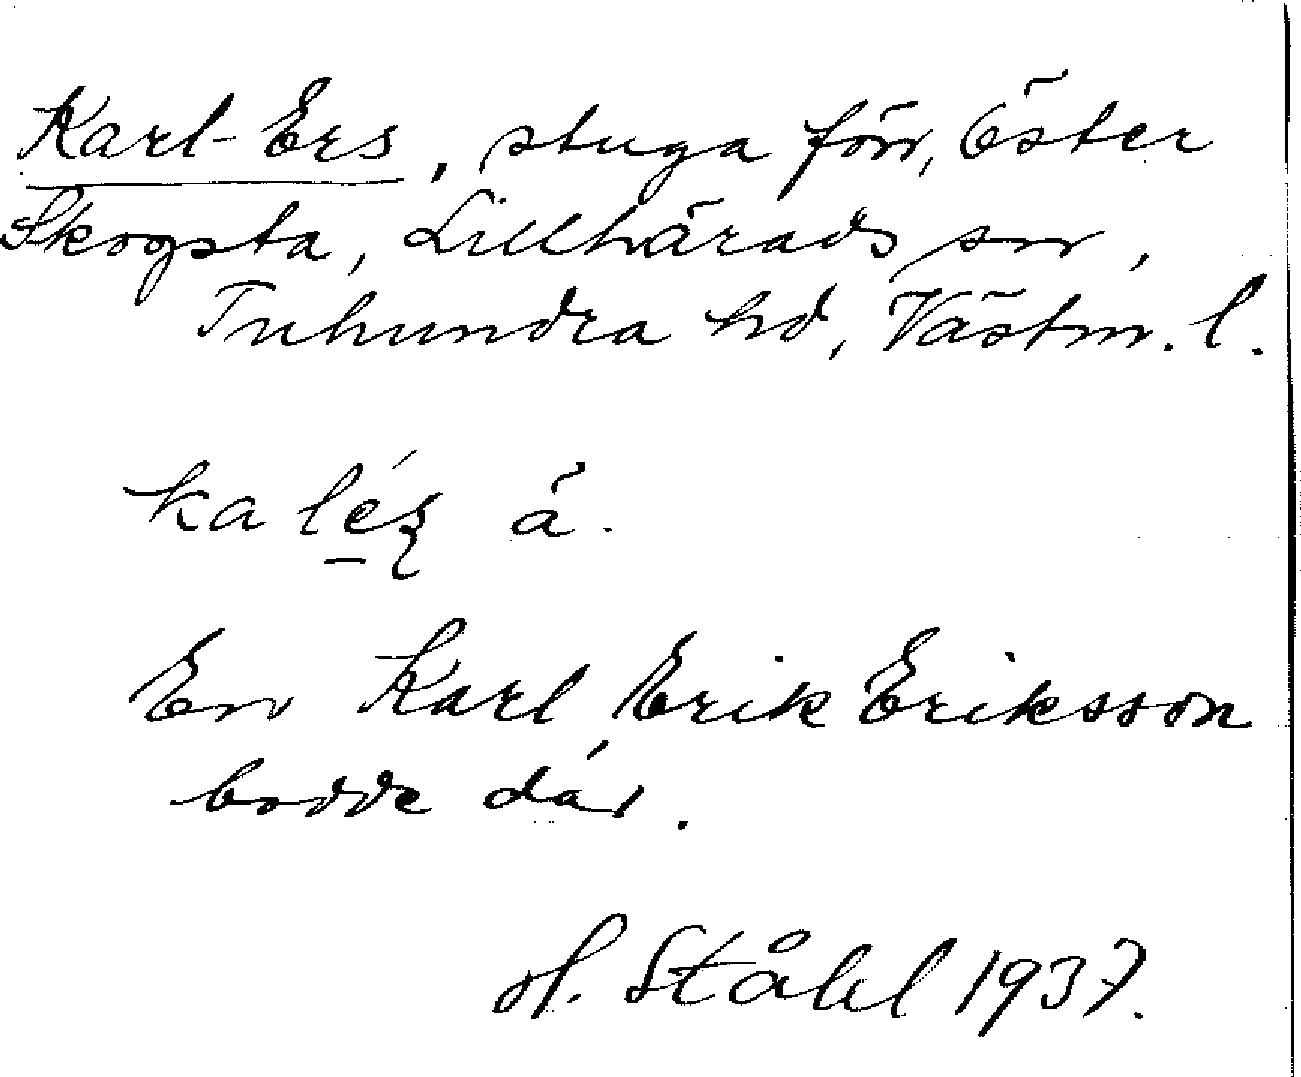 Karl-Ers, stuga förr, Öster
Skogsta, Lillhärads sn,
Tuhundra hd, Västm. l.
ka lé̱ʂ ä.
En Karl Erik Eriksson
bodde där.
H. Ståhl 1937.